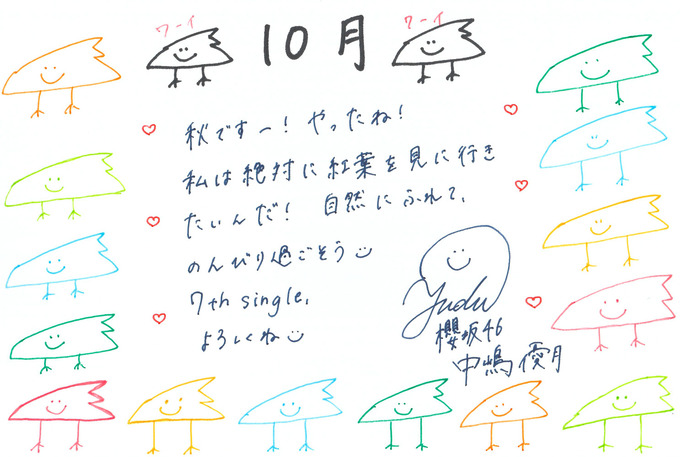 ワーイ 10月 ワーイ
秋ですー! やったね!
私は絶対に紅葉を見に行き
たいんだ! 自然にふれて、
のんびり過ごそう
7th single,
よろしくね
Yudu
櫻坂46
中嶋優月